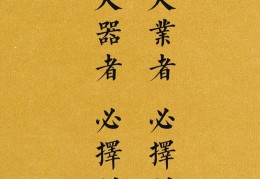 業者 必擇
器者 必擇